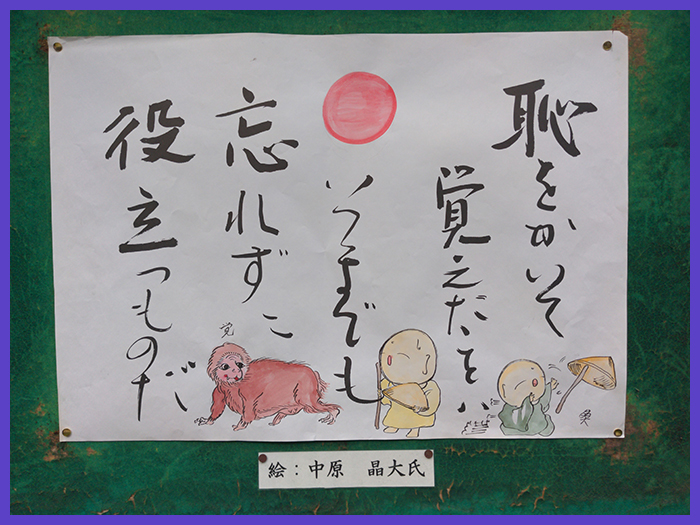 恥をかいて
覚えたことハ
いつまでも
忘れずに
役立つものだ
覚
絵：中原　晶大氏